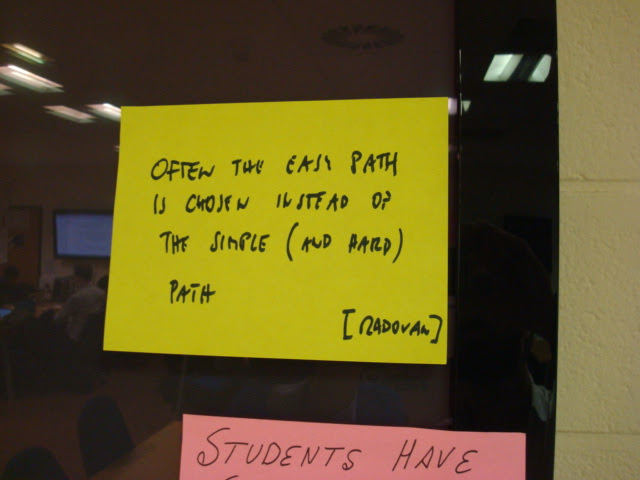 OFTEN THE EASY PATH
IS CHOSEN INSTEAD OF
THE SIMPLE (AND HARD)
PATH
[RADOVAN]
STUDENTS HAVE